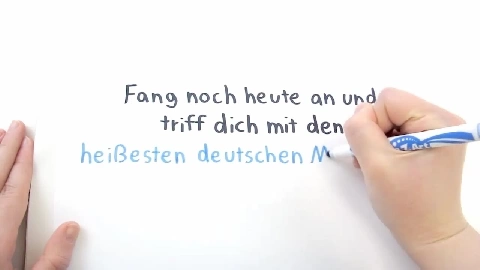 Fang noch heute an und
triff dich mit den
heißesten deutschen